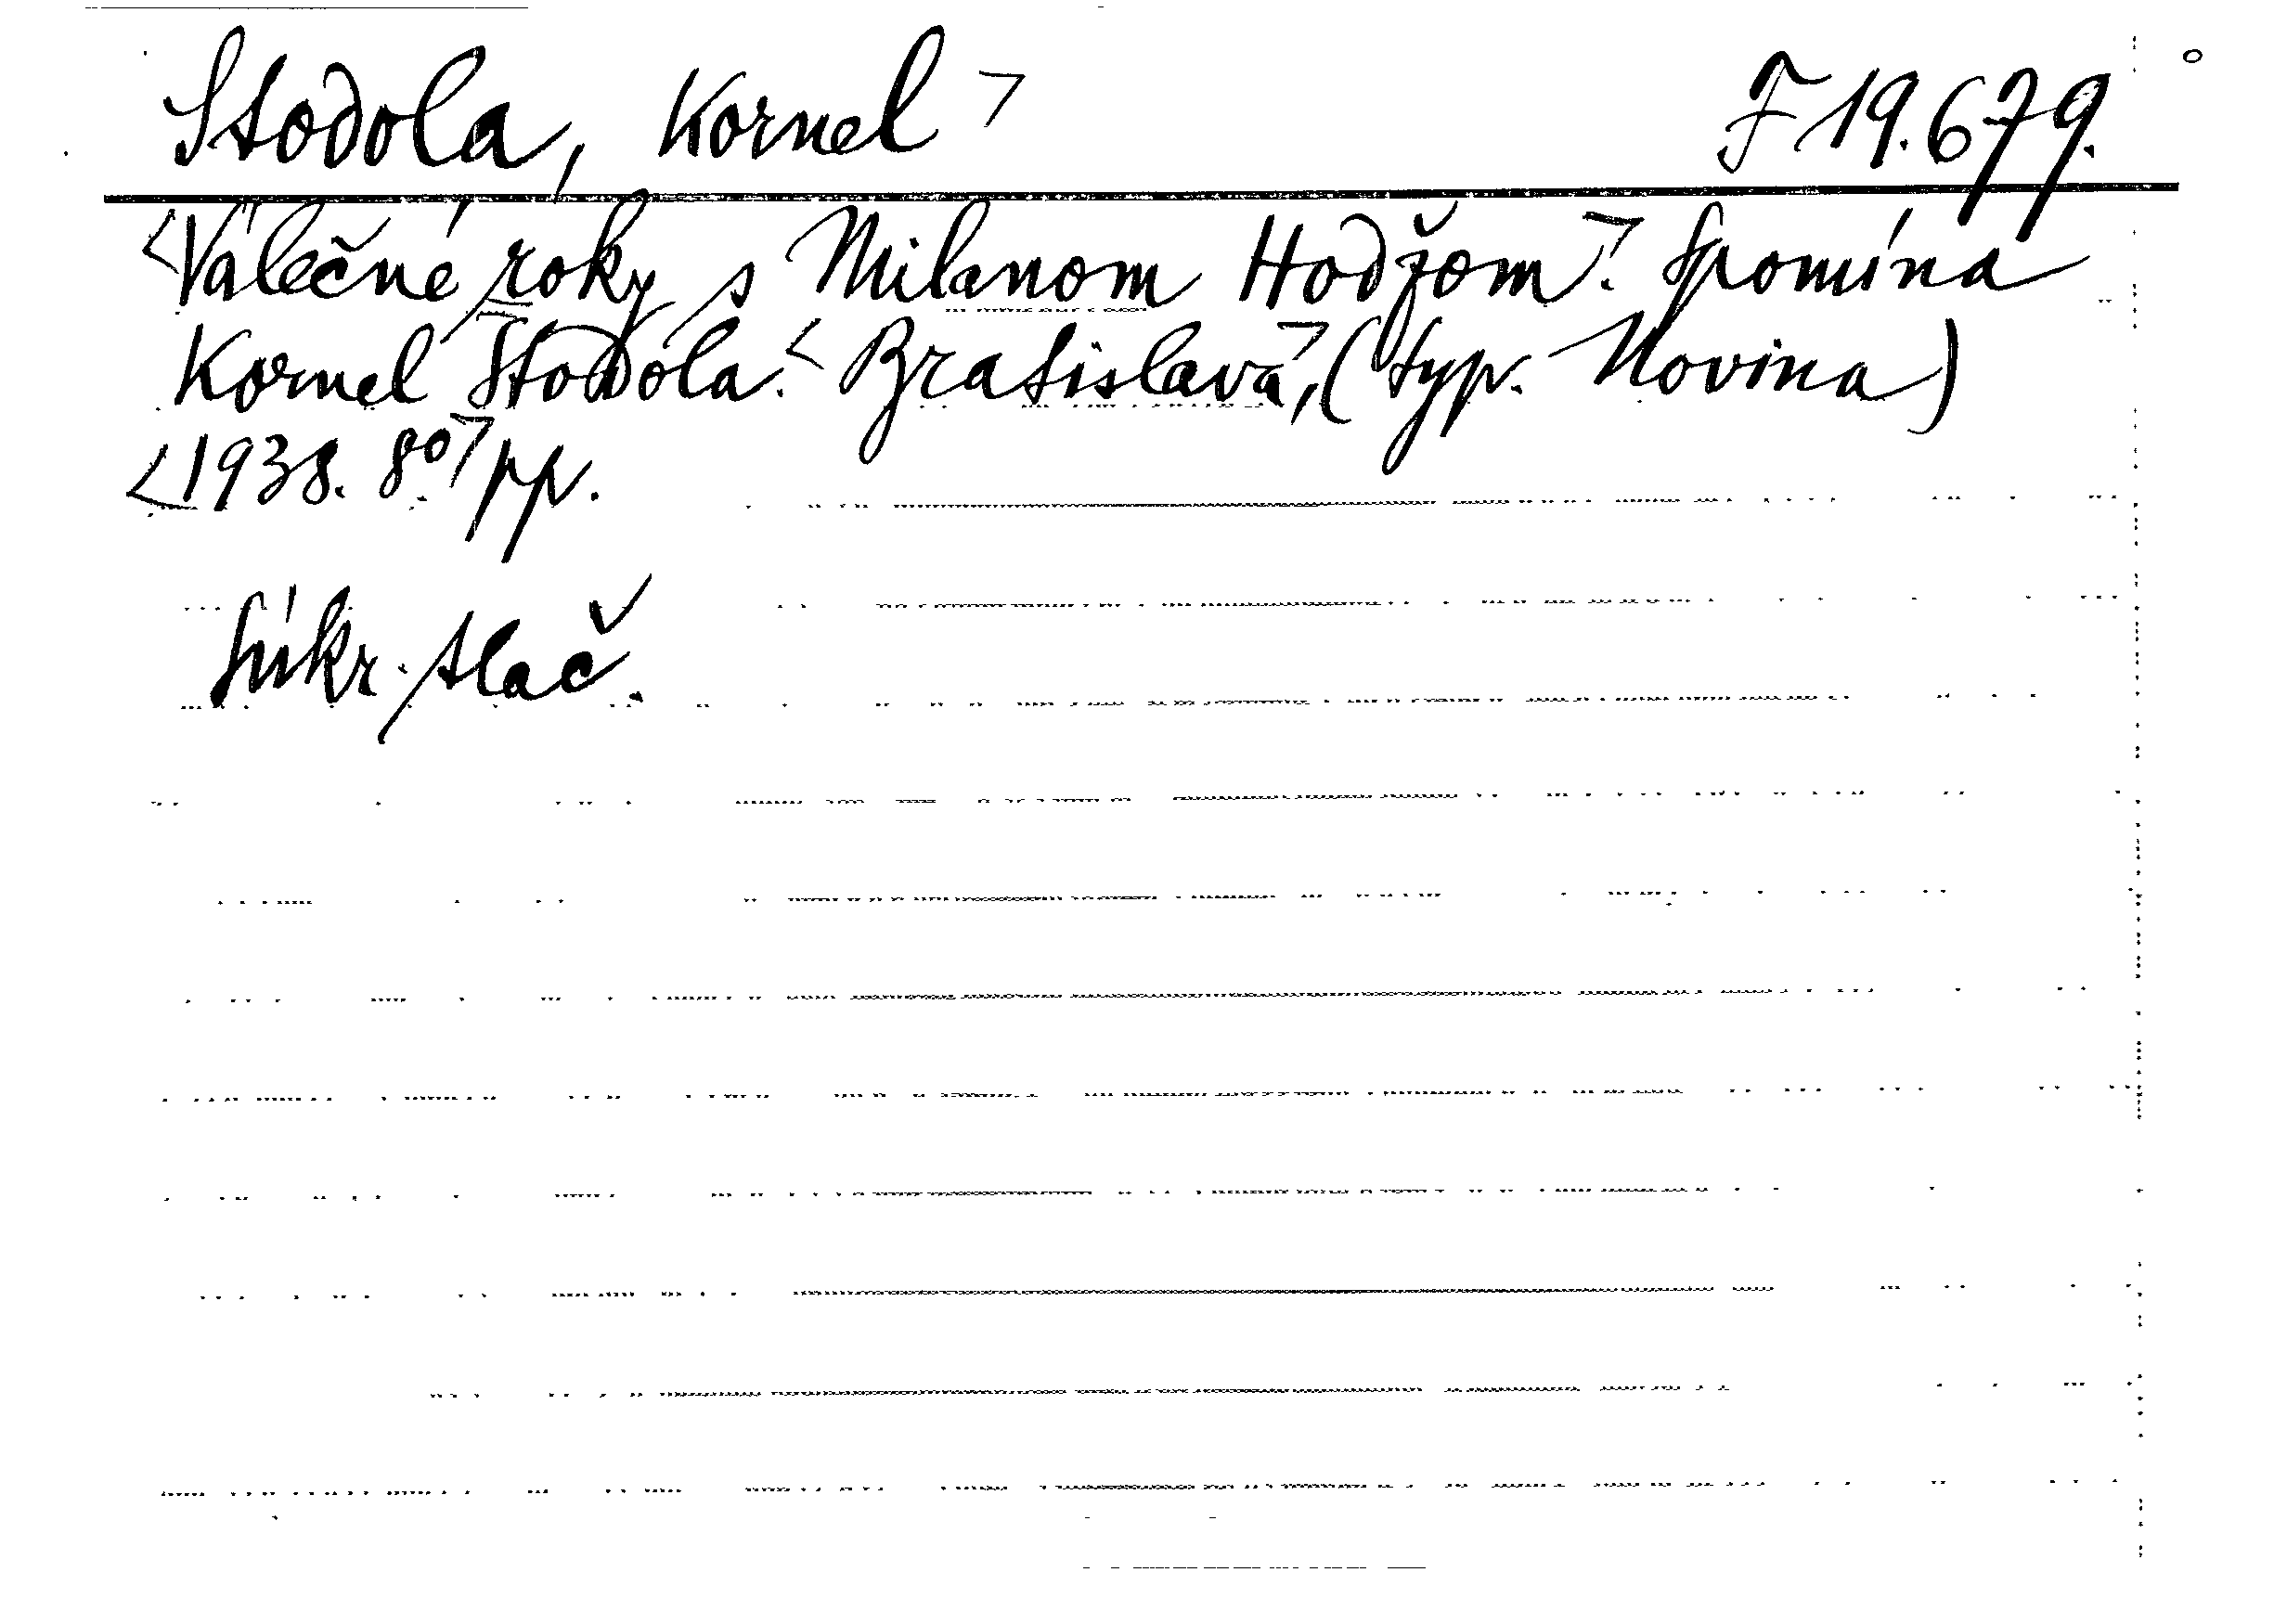 Stodola, Kornel ㄱ F 19.679.
<Válečné roky s Milanom Hodžom.ㄱ Spomína
Kornel Stodola. <Bratislava,ㄱ (typ. Novina)
<1938. 8°ㄱ pp.
Súkr. tlač.